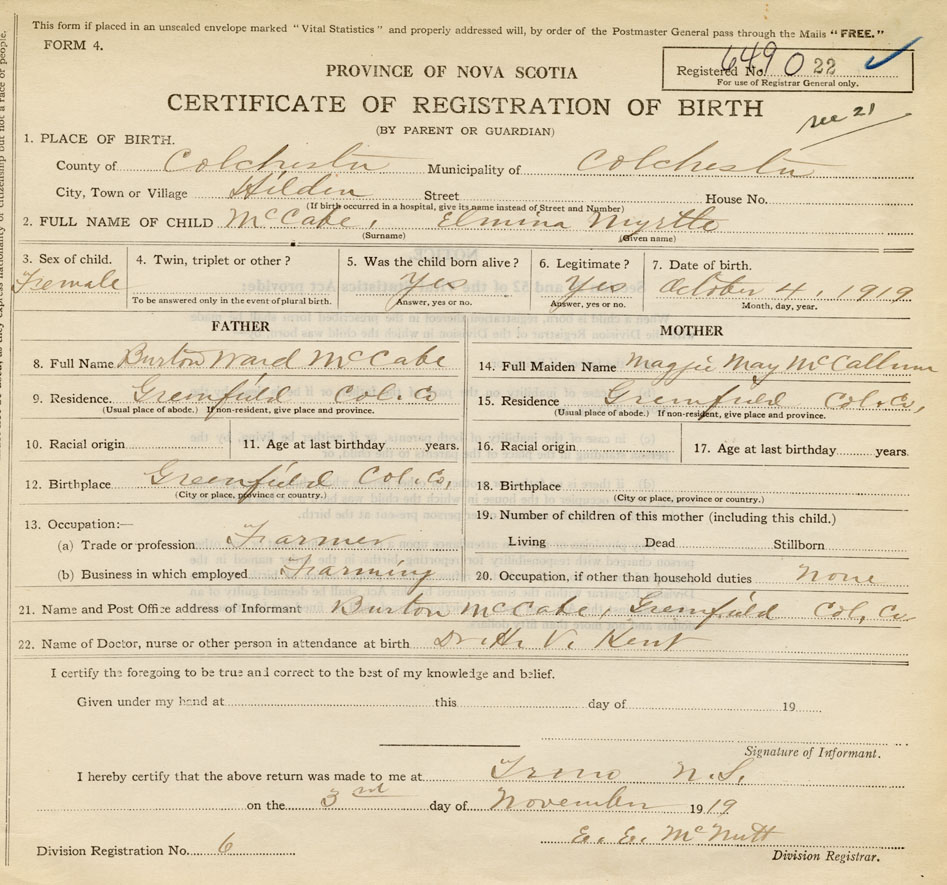 This form if placed in an unsealed envelope marked "Vital Statistics" and properly addressed will, by order of the Postmaster General pass through the Mails "FREE."
FORM 4.
Registered No. 6490 22
For use of Registrar General only.
PROVINCE OF NOVA SCOTIA
CERTIFICATE OF REGISTRATION OF BIRTH
(BY PARENT OR GUARDIAN)
1. PLACE OF BIRTH.
County of Colchester Municipality of Colchester
City, Town or Village Hilden Street House No.
(If birth occurred in a hospital, give its name instead of Street and Number)
2. FULL NAME OF CHILD McCabe, Elmina Myrtle
(Surname) (Given name)
3. Sex of child. 4. Twin, triplet or other? 5. Was the child born alive? 6. Legitimate? 7. Date of birth.
Female Yes Yes October 4, 1919
To be answered only in the event of plural birth. Answer, yes or no. Answer, yes or no. Month, day, year.
FATHER MOTHER
8. Full Name Burton Ward McCabe 14. Full Maiden Name Maggie May McCallum
9. Residence. Greenfield Col. Co 15. Residence Greenfield Col. Co,
(Usual place of abode.) If non-resident, give place and province. (Usual place of abode.) If non-resident, give place and province.
10. Racial origin 11. Age at last birthday years. 16. Racial origin 17. Age at last birthday years.
12. Birthplace Greenfield Col. Co, 18. Birthplace
(City or place, province or country.) (City or place, province or country.)
13. Occupation:— 19. Number of children of this mother (including this child.)
(a) Trade or profession Farmer Living Dead Stillborn
(b) Business in which employed Farming 20. Occupation, if other than household duties none
21. Name and Post Office address of Informant Burton McCabe, Greenfield Col, Co
22. Name of Doctor, nurse or other person in attendance at birth Dr. H. V. Kent
I certify the foregoing to be true and correct to the best of my knowledge and belief.
Given under my hand at this day of 19
Signature of Informant.
I hereby certify that the above return was made to me at Truro N.S.
on the 3rd day of November 1919
E. E. McNutt
Division Registration No. 6 Division Registrar.